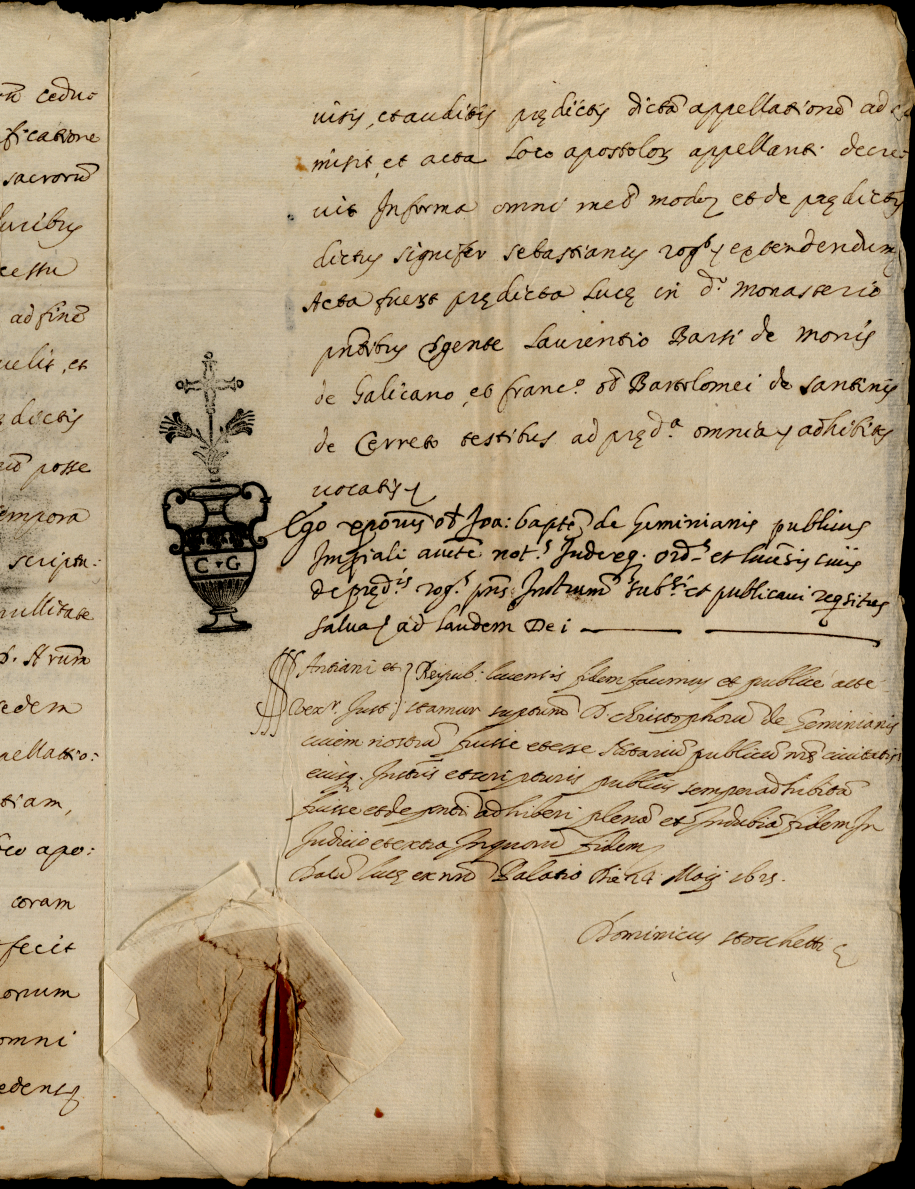 cedu=
ficatione
sacrorũ
Iuribus
cessu
ad finẽ
uelit, et
dictis
posse
tempora
scriptu:
nullitate
D. Arum
edem
pellatio:
tiam,
apo:
coram
fecit
orium
omni
edentq
uitis, et auditis prędictis dictã appellationẽ ad
misit, et acta Loco apostoloꝝ appellanti decre
uit In forma omni meõ modo, et de prędictis
dictus signifer sebastianus rog.s extendendum
Acta fuerũt prędicta Lucę in d.o monasterio
pñtibus Laurentio Barti de monis
de Galicano, et franc.o Bartolomei de santinis
de Cerreto testibus ad pręd.a omnia, adhibitis
uocatis,
C G
Ego Joa: baptẽ de Geminianis publicus
Impiali aucte not.s Iudexq. ord.s et lucẽsis ciuis
de pręd.is rog.s pñs Instrum subs.si et publicaui
salua, ad Laudem Dei
Antiani et } Reipub: lucensis fidem facimus et publice atte
Vex.r Iust: } stamur suptum D. Christophorũ de Geminianis
ciuem nostrũ fuisse et esse Notariũ publicũ nrẽ ciuitatis
eiusq. Instris et scripturis publicis semper adhibitã
fuisse et de pnti adhiberi plenã et Indubiã fidem In
Iudicio et extra In quorũ fidem
Datũ Lucę ex nrõ Palatio Die 14 Maij 1625.
Dominicus